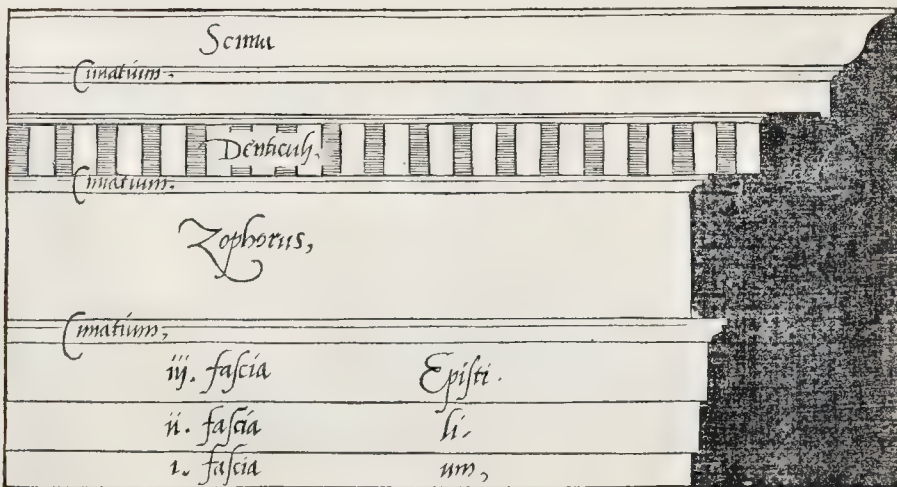 Scima
Cimatium.
Denticuli.
Cimatium.
Zophorus,
Cimatium,
iij. faſcia Epiſti.
ii. faſcia li.
i. faſcia um,